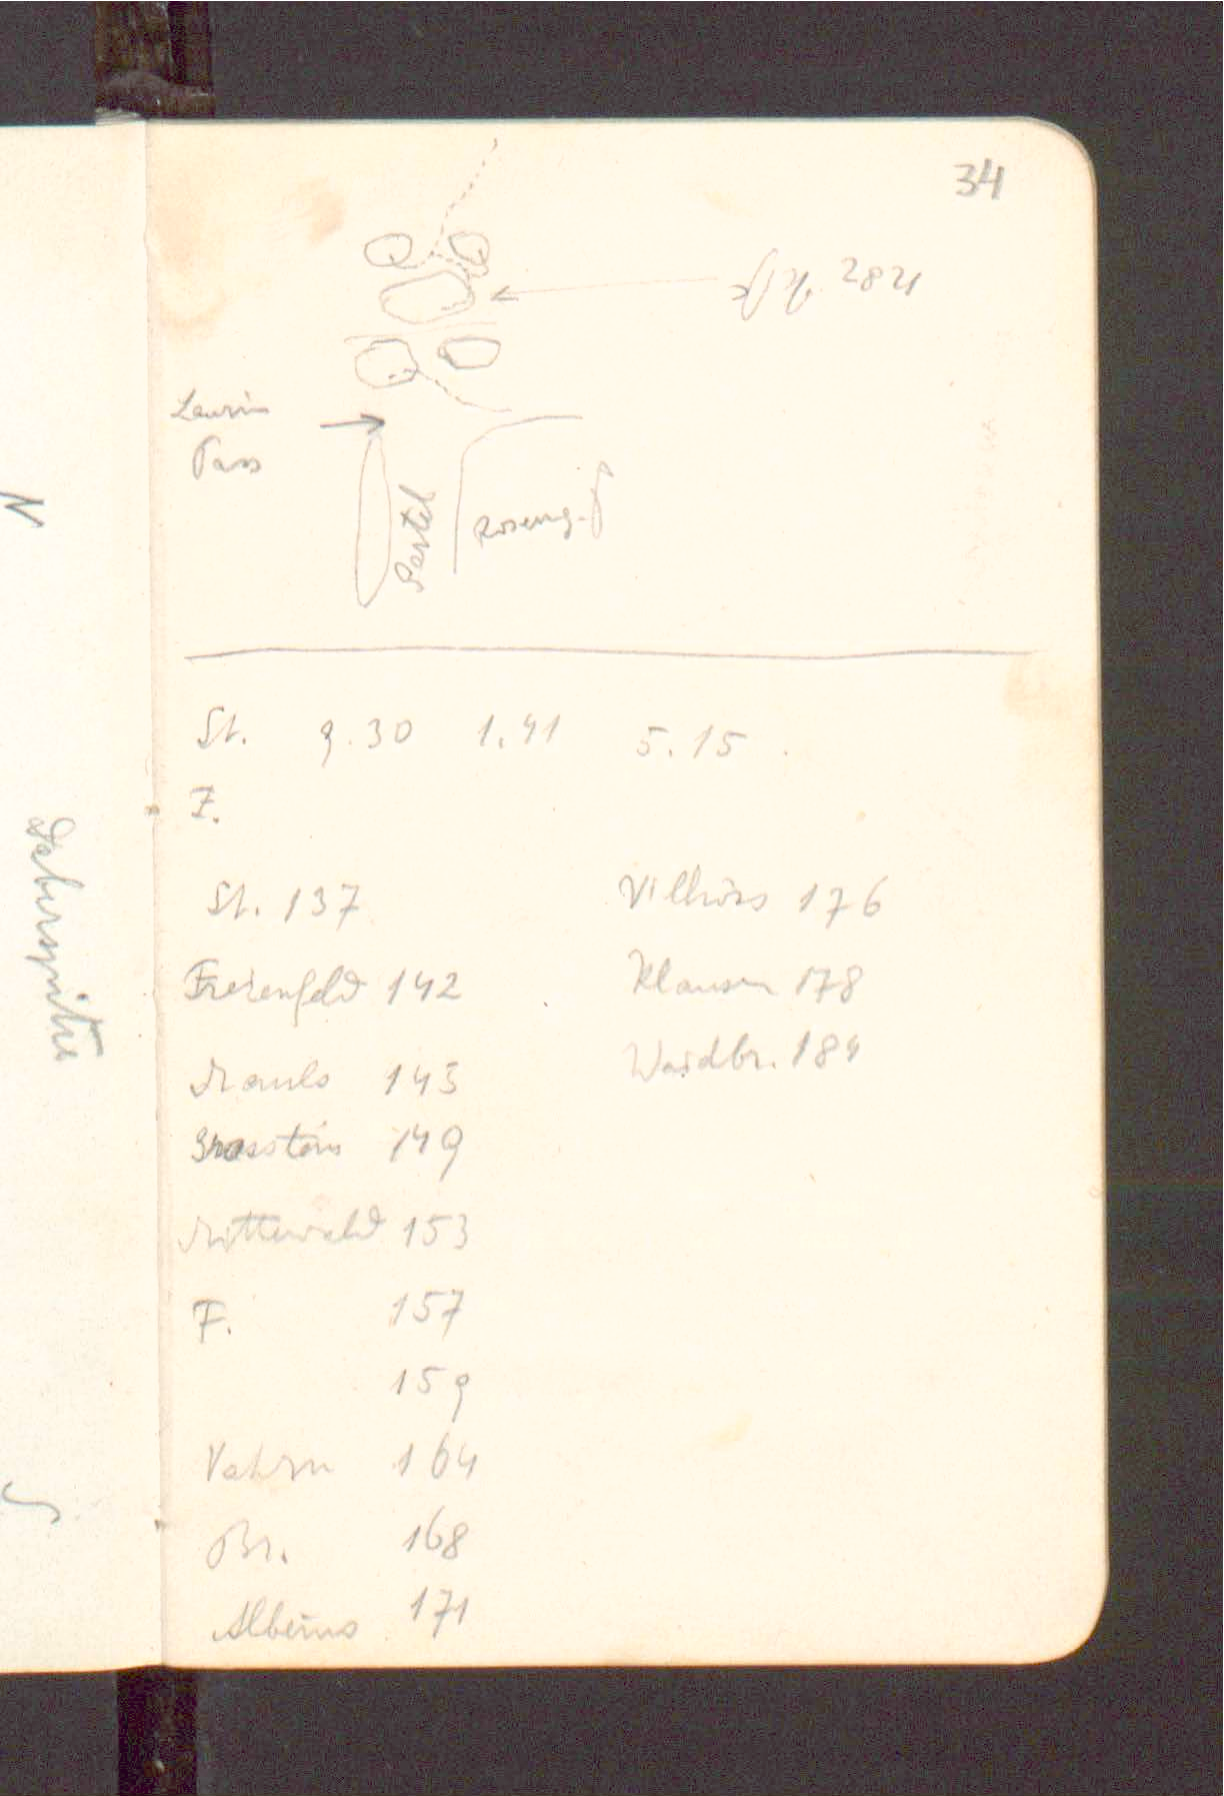 34
Gpf. 2821
Laurins
Pass
Santel
Roseng. S
St. 9.30 1.41 5.15
F.
St. 137
Freienfeld 142
Mauls 145
Grasstein 149
Mittewald 153
F. 157
159
Vahrn 164
Br. 168
Albeins 171
Villnöss 176
Klausen 178
Waidbr. 184
N
Daberspitze
S